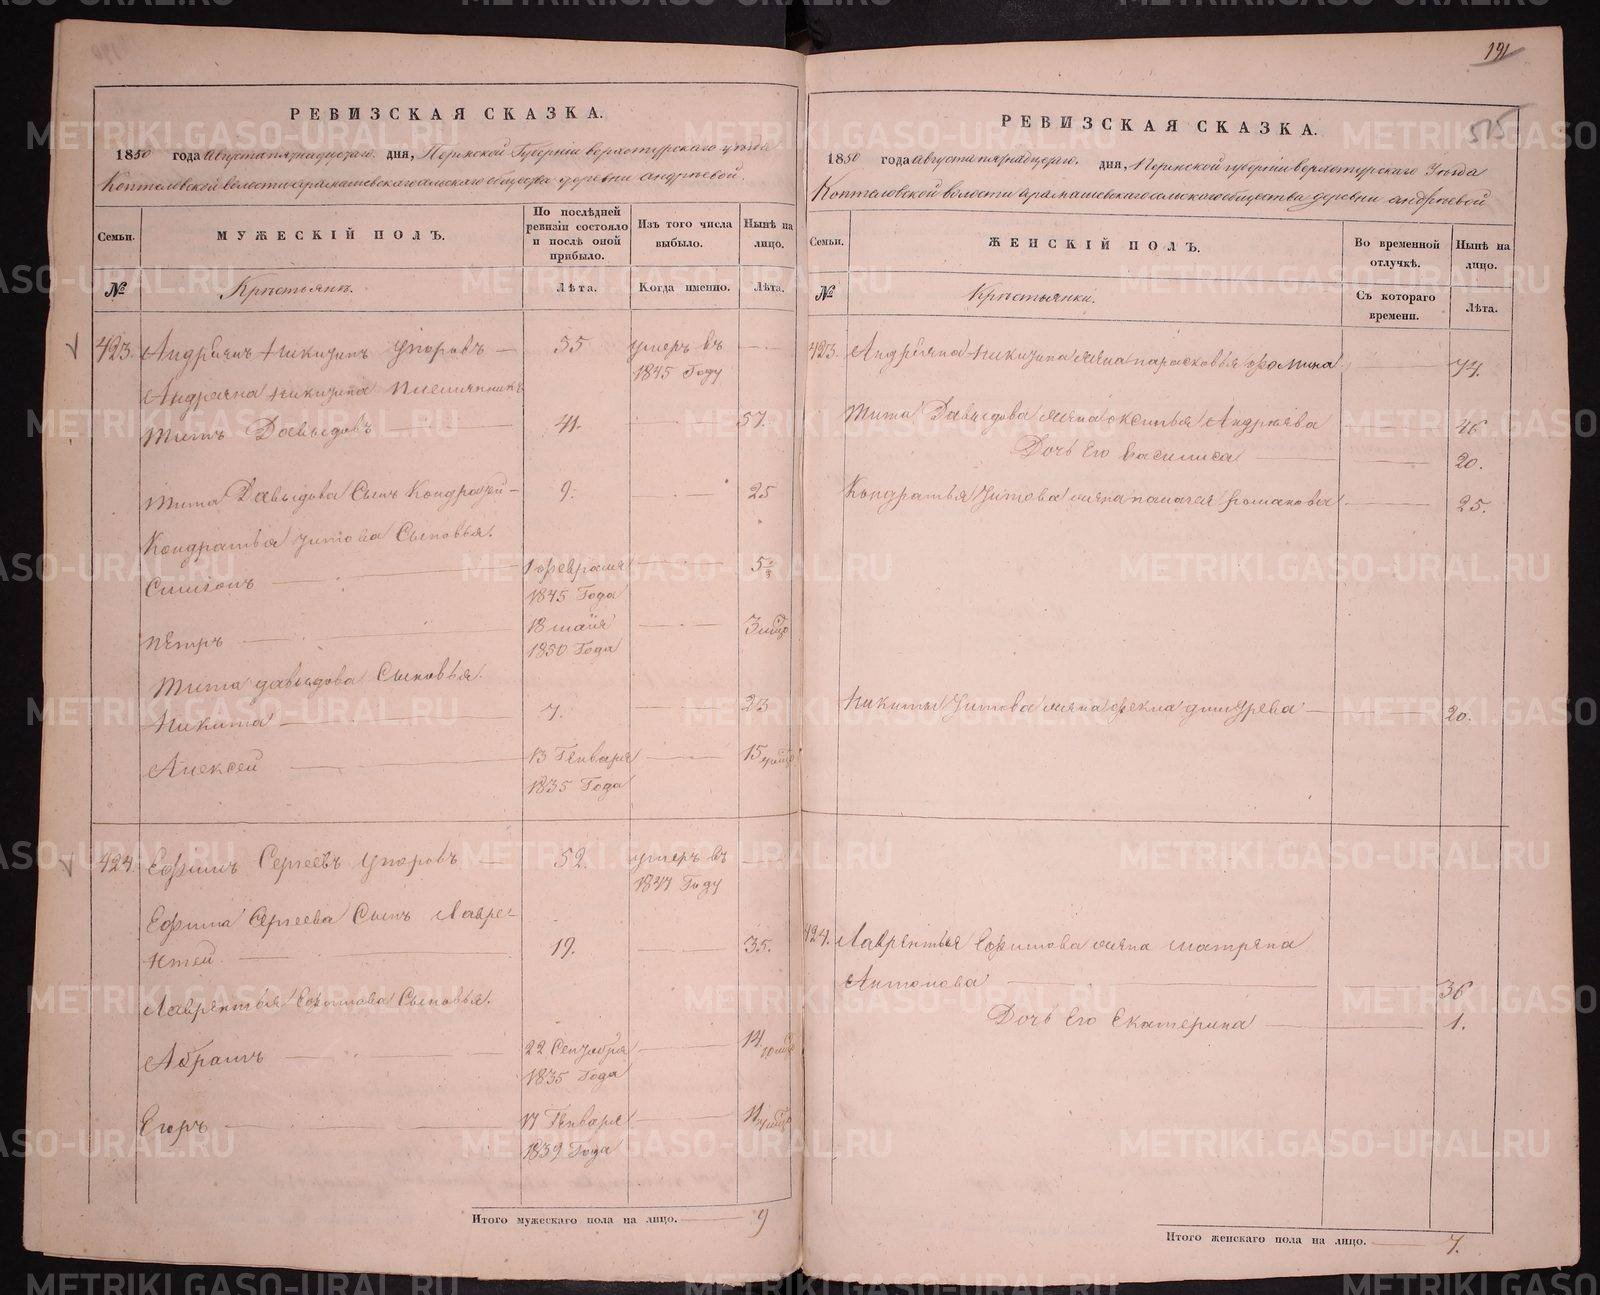 191
515
РЕВИЗСКАЯ СКАЗКА.
1850 года Августа пятнадцатаго дня, Пермской Губернии верхотурскаго уѣзда
Коптеловской волости арамашевскаго сельскаго общества деревни андреевой.
Семьи.
МУЖЕСКІЙ ПОЛЪ.
По послѣдней ревизіи состояло и послѣ оной прибыло.
Изъ того числа выбыло.
Нынѣ на лицо.
№
Крестьянъ.
Лѣта.
Когда именно.
Лѣта.
423. Андреянъ Никитинъ Упоровъ — 55 умеръ въ
1845 Году
Андреяна Никитина племянникъ
Титъ Давыдовъ 41. 57.
Тита Давыдова Сынъ Кондратій — 9. 25
Кондратья Титова Сыновья.
Симеонъ 1 февраля 5
1845 Года
Петръ 18 маія 3
1850 Года
Тита давыдова Сыновья.
Никита 7. 23
Алексей 13 Генваря 15
1835 Года
424. Ефимъ Сергеевъ Упоровъ — 52. умеръ въ
1847 Году
Ефима Сергеева Сынъ Лавре-
нтей 19. 35.
Лаврентья Ефимова Сыновья.
Абрамъ 22 Сентября 14.
1835 Года
Егоръ 17 Генваря 11
1839 Года
Итого мужескаго пола на лицо. 9
РЕВИЗСКАЯ СКАЗКА.
1850 года августа пятнадцатаго. дня, Пермской губернии верхотурскаго Уѣзда
Коптеловской волости арамашевскаго сельскаго общества деревни андреевой
Семьи.
ЖЕНСКІЙ ПОЛЪ.
Во временной отлучкѣ.
Нынѣ на лицо.
№
Крестьянки.
Съ котораго времени.
Лѣта.
423. Андреяна Никитина жена парасковья фомина 74.
Тита Давыдова жена оксинья Андреева 46
Дочь Его Василиса 20.
Кондратья Титова жена палагея романова 25.
Никиты Титова жена фекла дмитрева — 20.
424. Лаврентья Ефимова жена матрена
Антонова 36
Дочь Его Екатерина 1.
Итого женскаго пола на лицо. 7.
METRIKI.GASO-URAL.RU